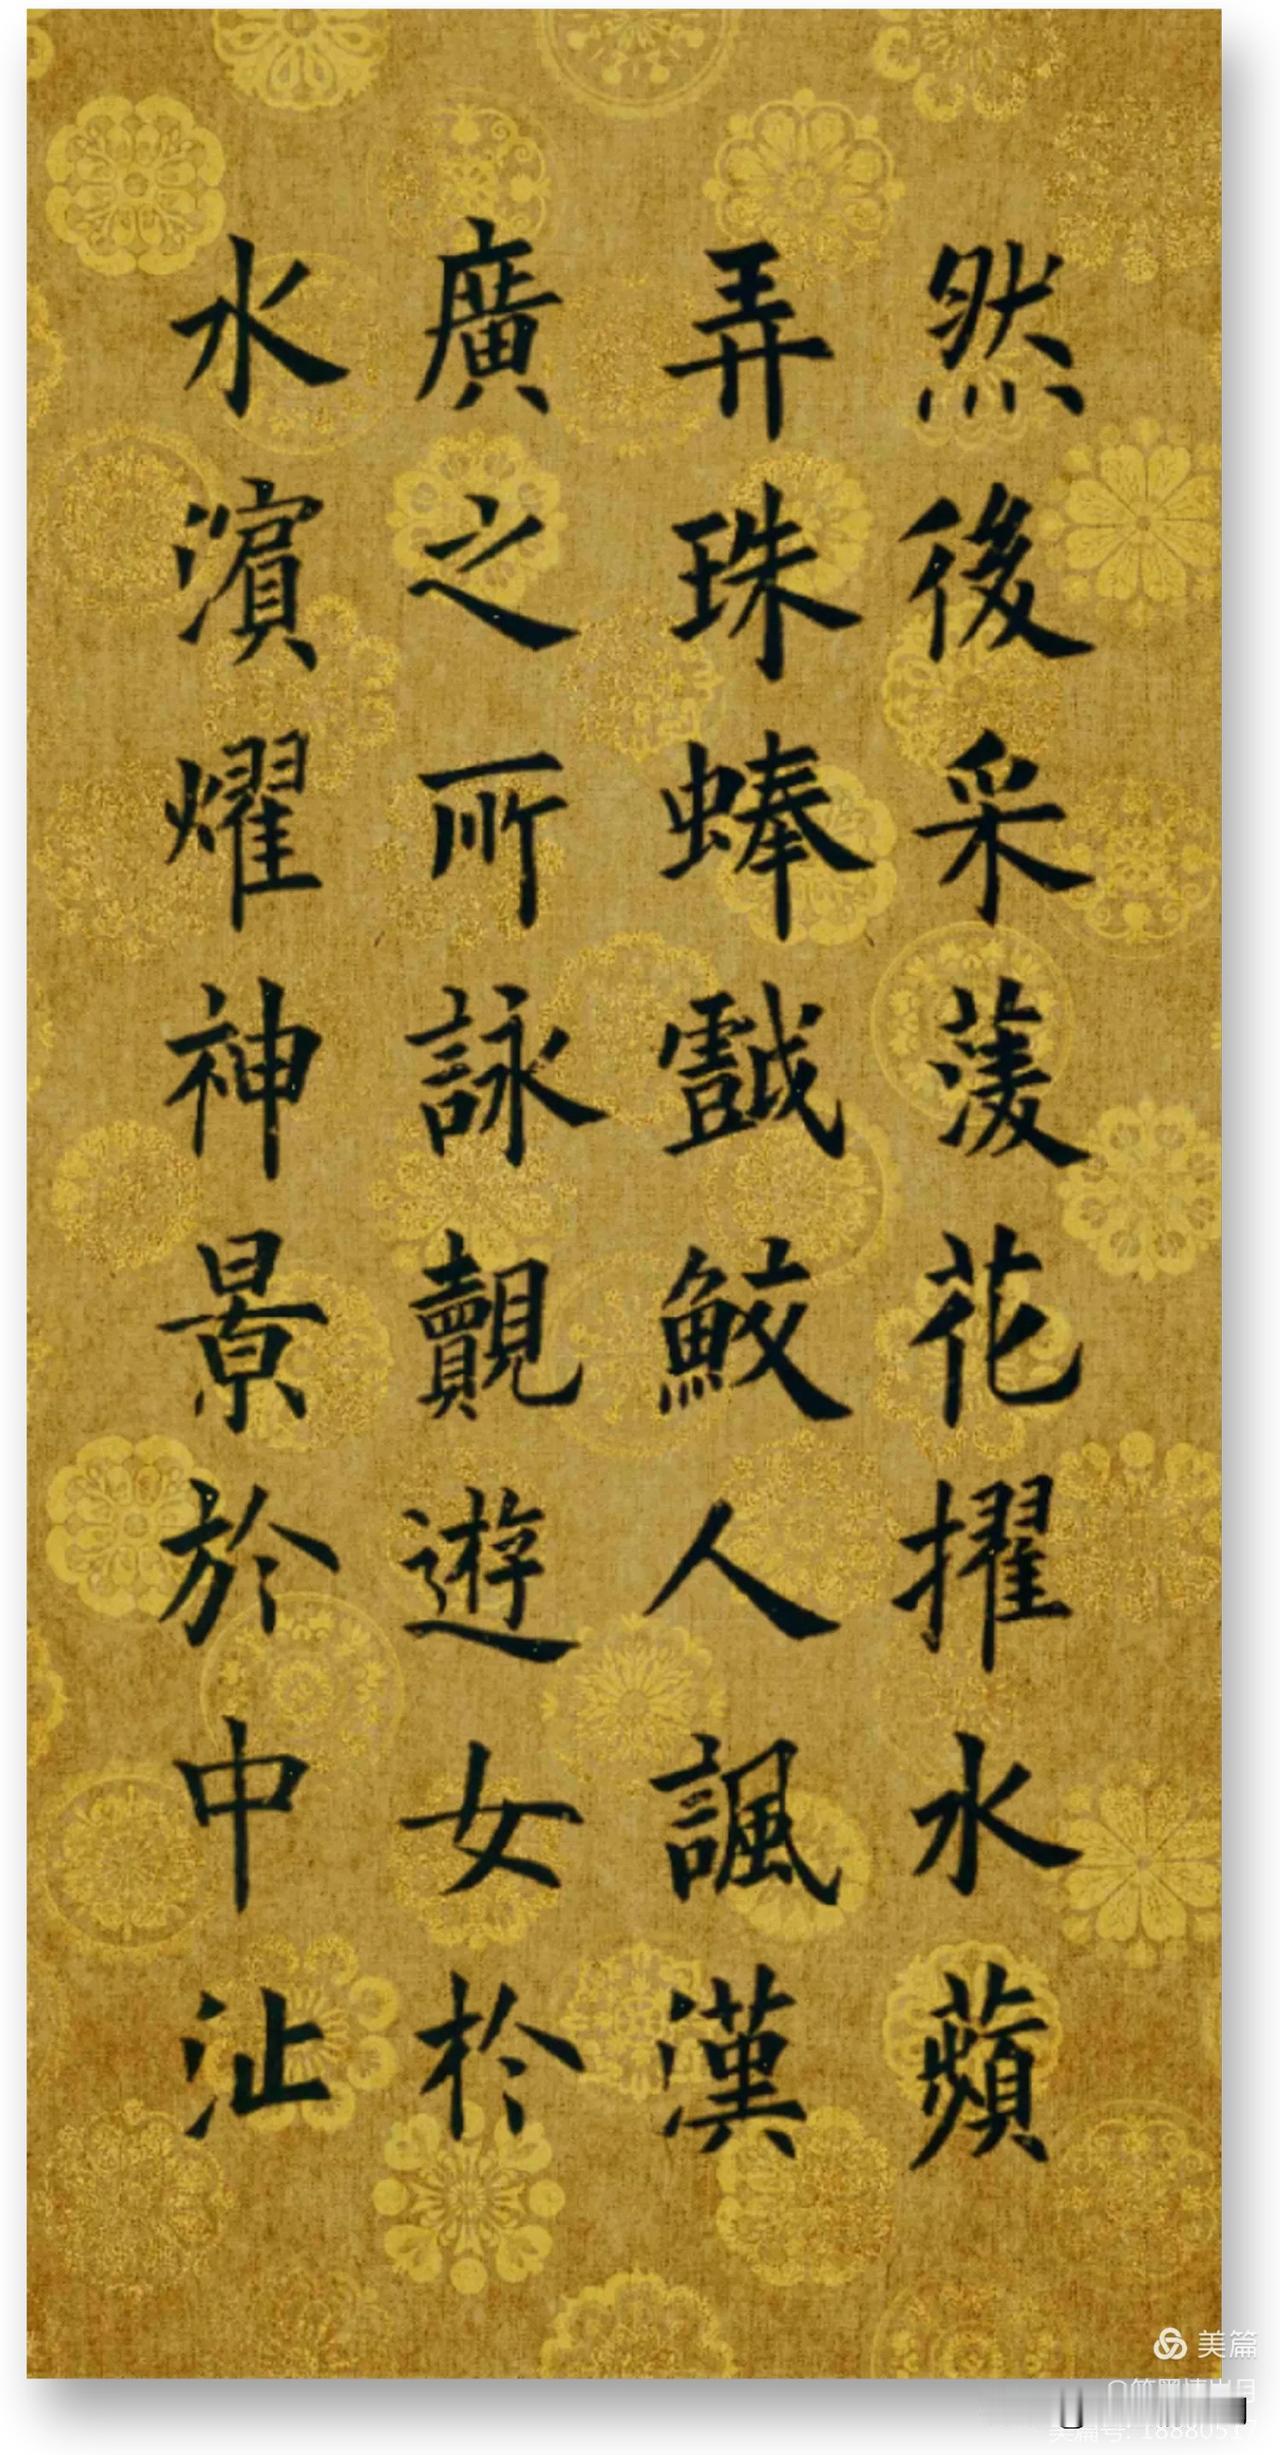 然後采菱花擢水蘋
弄珠蜯戲鮫人諷漢
廣之所詠覿遊女於
水濱耀神景於中沚
美篇
美篇号: 18880517